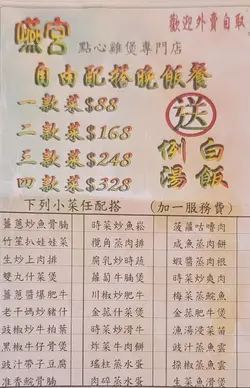 燕宮
點心雞煲專門店
歡迎外賣自取
自由配搭晚飯餐
一款菜$88
二款菜$168
三款菜$248
四款菜$328
送
例湯
白飯
下列小菜任配搭 (加一服務費)
薑蔥炒魚腩 時菜炒魚崧 菠蘿咕嚕肉
竹笙扒娃娃菜 欖角蒸肉排 咸魚蒸肉餅
生炒上肉排 腐乳炒時蔬 蝦醬蒸肉根
雙丸什菜煲 蘿蔔牛腩煲 時菜炒爽肉
薑蔥醬爆肥牛 川椒炒肥牛 梅菜蒸鯇魚
老干媽炒豬什 金菇什菜煲 金菇蒸肥牛
豉椒炒牛柏葉 時菜炒滑牛 漁湯浸菜苗
黑椒牛仔骨煲 炸菜牛肉餅 豉汁蒸魚雲
豉汁帶子豆腐 瑤柱蒸水蛋 採椒蒸魚雲
准杏院骨煲 肉碎蒸水蛋 生菜魚滑煲